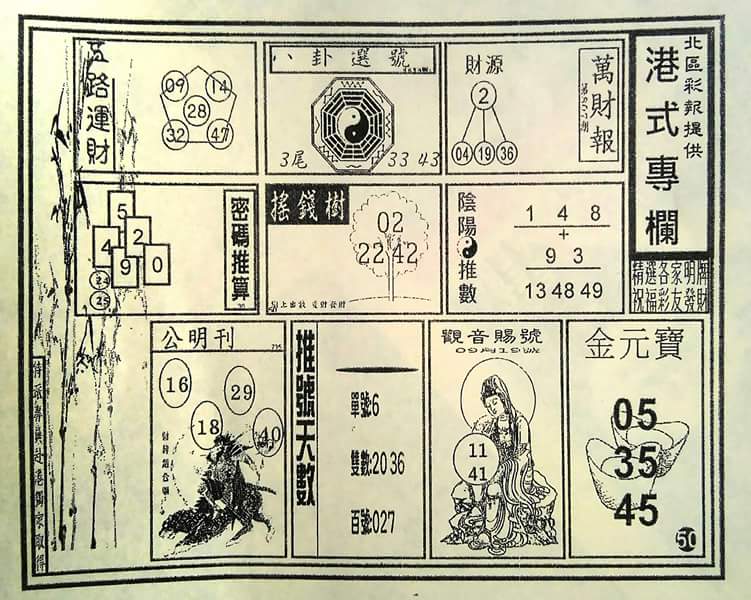 北區彩報提供
港式專欄
精選各家明牌
祝福彩友發財
萬財報
財源
2
04 19 36
八卦選號
3尾
33 43
五路運財
09 14
28
32 47
陰陽推數
1 4 8
+
9 3
13 48 49
搖錢樹
02
22 42
密碼推算
5
4 2
9 0
24
25
金元寶
05
35
45
50
觀音賜號
09月19號
11
41
推號天數
單號6
雙數:20 36
百號:027
公明刊
16
29
18
40
特派專員赴港獨家取得